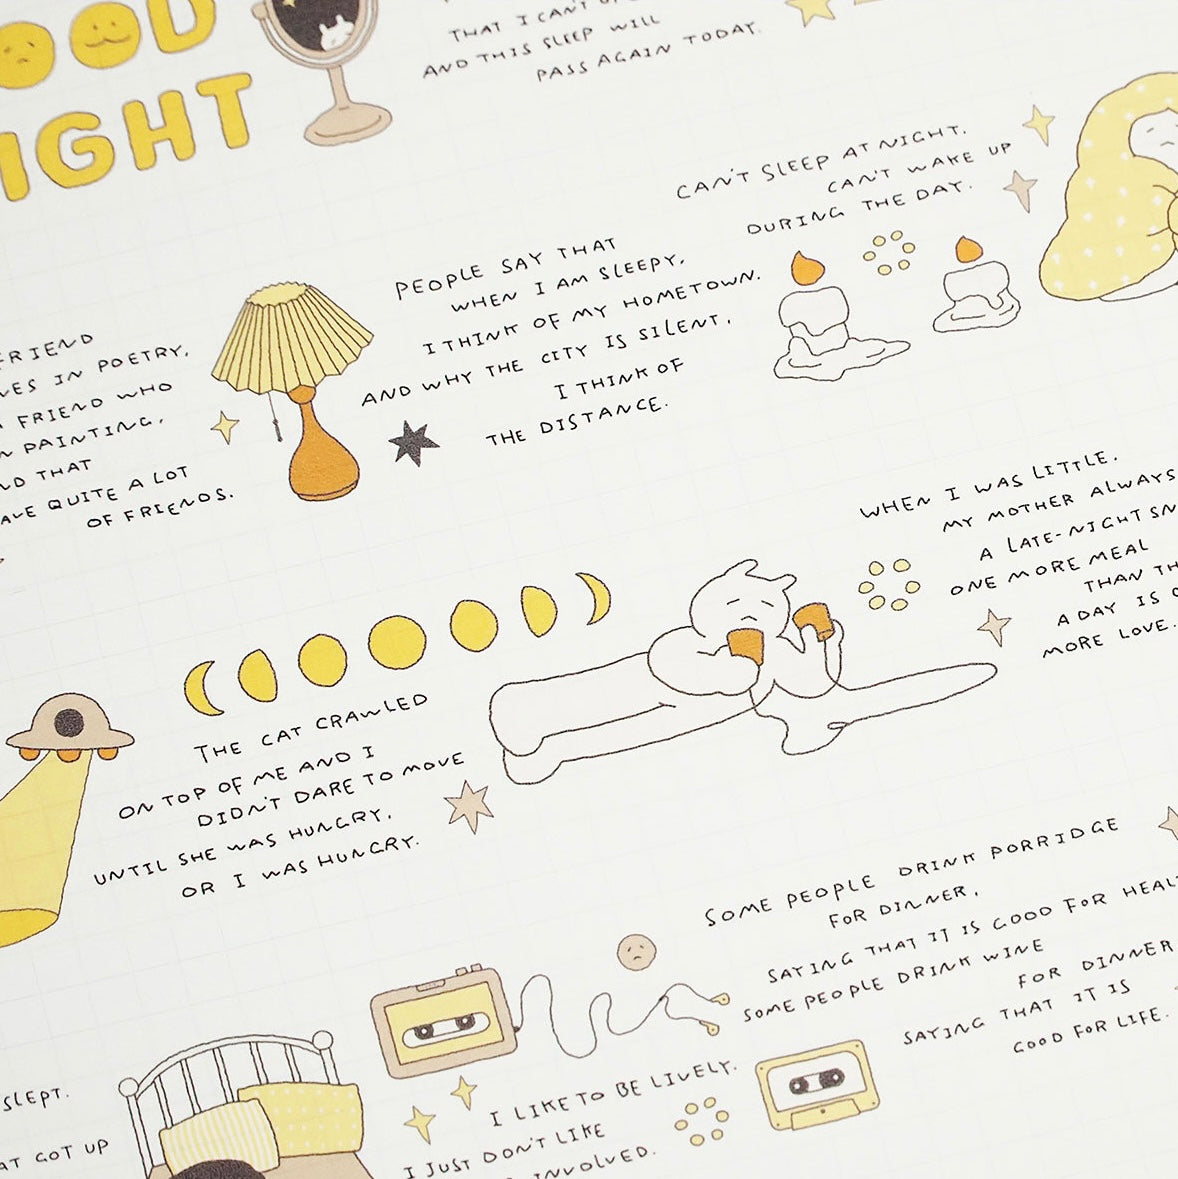 OOD
IGHT
THAT I CAN'T
AND THIS SLEEP WILL
PASS AGAIN TODAY.
CAN'T SLEEP AT NIGHT.
CAN'T WAKE UP
DURING THE DAY.
PEOPLE SAY THAT
WHEN I AM SLEEPY,
I THINK OF MY HOMETOWN.
AND WHY THE CITY IS SILENT,
I THINK OF
THE DISTANCE.
FRIEND
VES IN POETRY,
A FRIEND WHO
N PAINTING,
ND THAT
AVE QUITE A LOT
OF FRIENDS.
WHEN I WAS LITTLE,
MY MOTHER ALWAYS
A LATE-NIGHT SN
ONE MORE MEAL
THAN TH
A DAY IS
MORE LOVE.
THE CAT CRAWLED
ON TOP OF ME AND I
DIDN'T DARE TO MOVE
UNTIL SHE WAS HUNGRY,
OR I WAS HUNGRY.
SOME PEOPLE DRINK PORRIDGE
FOR DINNER,
SAYING THAT IT IS GOOD FOR HEAL
SOME PEOPLE DRINK WINE
FOR DINNER
SAYING THAT IT IS
GOOD FOR LIFE.
SLEPT.
AT GOT UP
I LIKE TO BE LIVELY.
I JUST DON'T LIKE
INVOLVED.